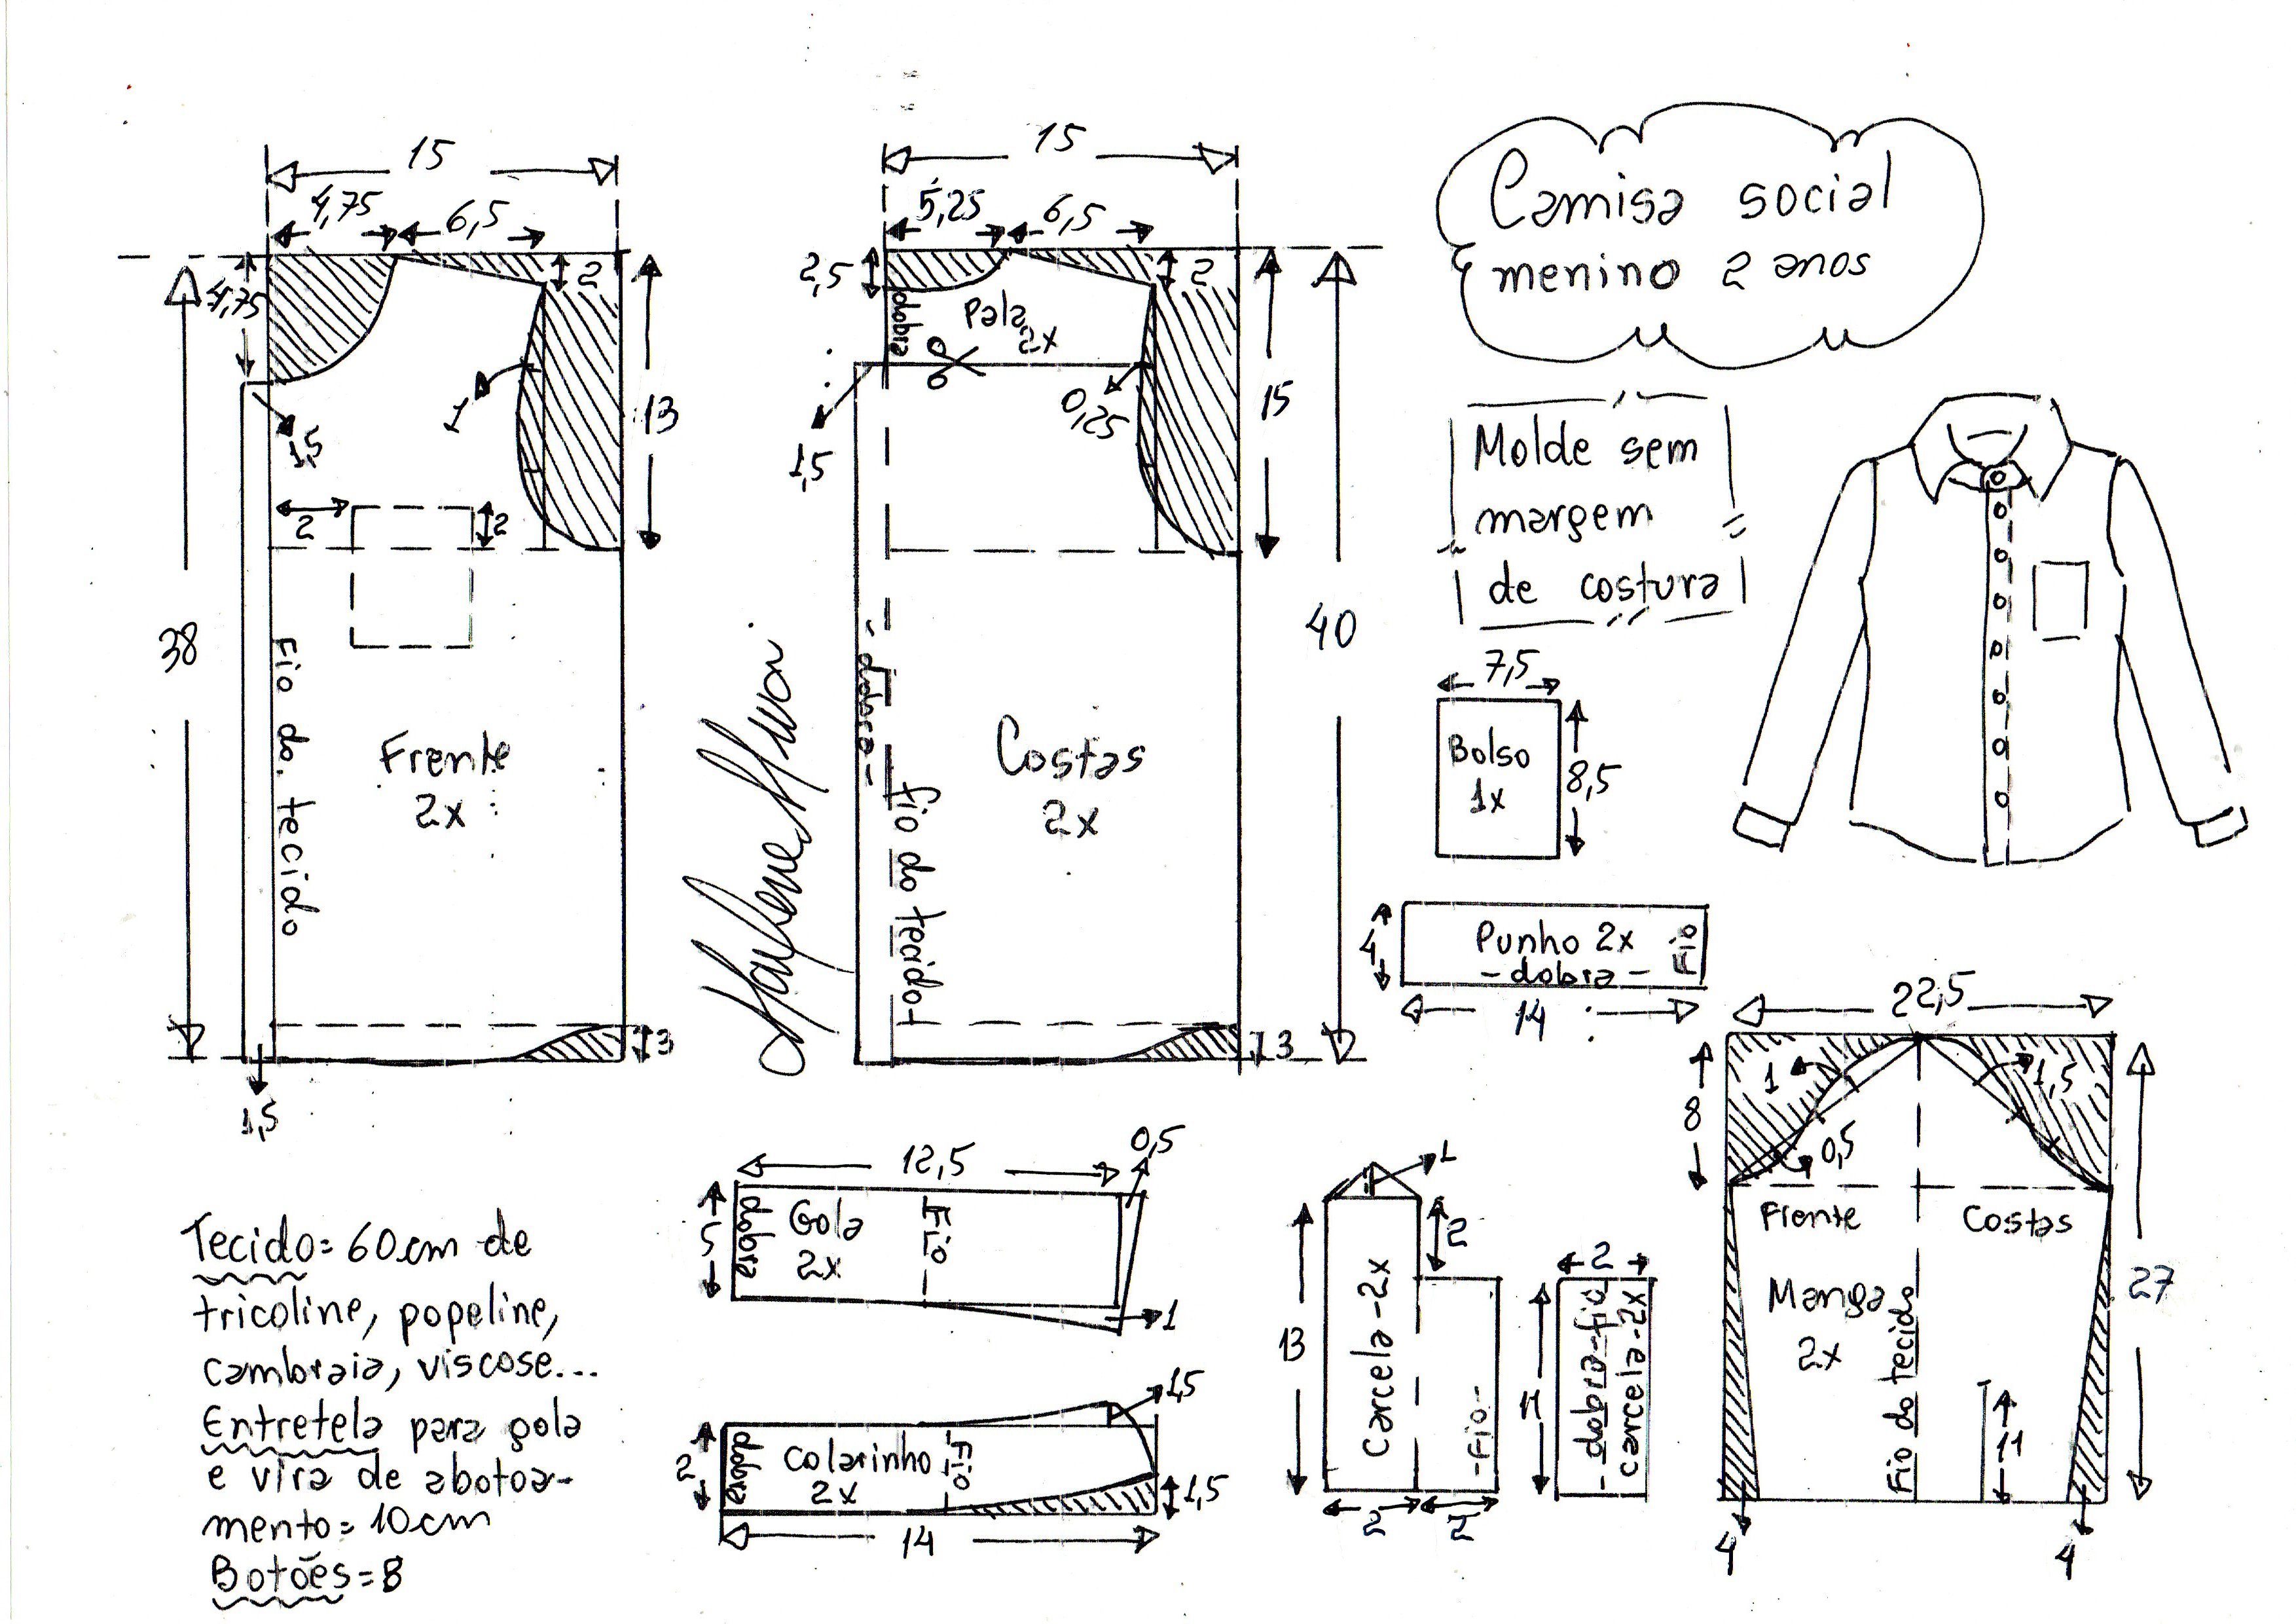 15
4,75
6,5
4,75
2
1
1,5
13
2
2
38
Fio do tecido
Frente
2x
3
1,5
15
5,25
6,5
2,5
2
dobra
Pala
2x
0,25
1,5
15
40
- dobra -
fio do tecido
Costas
2x
3
Camisa social
menino 2 anos
Molde sem
margem
de costura
7,5
Bolso
1x
8,5
4
Punho 2x
- dobra -
Fio
14
22,5
8
1
1,5
0,5
Frente
Costas
Manga
2x
Fio do tecido
27
11
4
4
Tecido = 60cm de
tricoline, popeline,
cambraia, viscose...
Entretela para gola
e vira de abotoa-
mento = 10cm
Botões = 8
12,5
0,5
5
dobra
Gola
2x
Fio
1
1,5
2
dobra
Colarinho
2x
Fio
1,5
14
1
2
13
Carcela - 2x
- Fio -
2
2
2
11
- dobra - fio
carcela - 2x